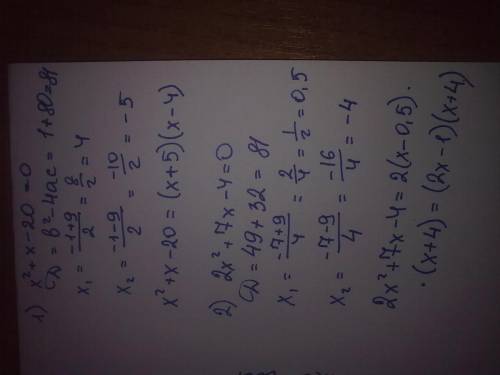 1) x²+x-20=0
D=b²-4ac=1+80=81
x₁ = (-1+9)/2 = 8/2 = 4
x₂ = (-1-9)/2 = -10/2 = -5
x²+x-20=(x+5)(x-4)
2) 2x²+7x-4=0
D=49+32=81
x₁ = (-7+9)/4 = 2/4 = 1/2 = 0,5
x₂ = (-7-9)/4 = -16/4 = -4
2x²+7x-4=2(x-0,5)·
·(x+4)=(2x-1)(x+4)